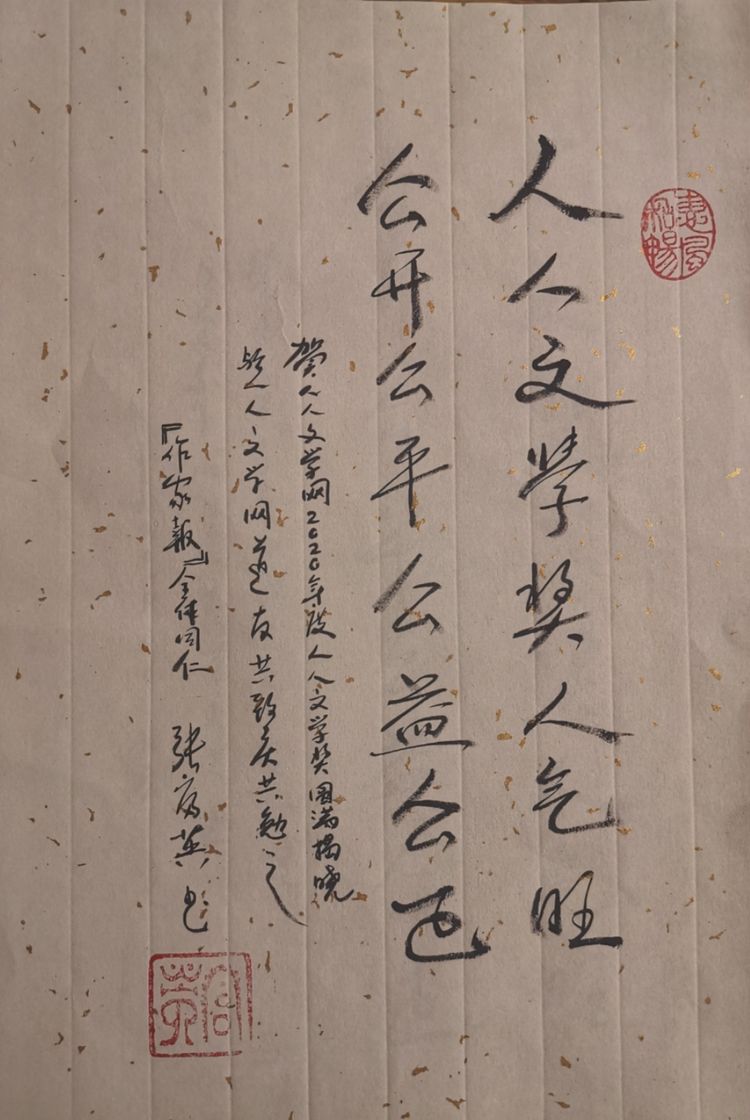 人人文学奖人气旺
公开公平公益公正
贺人人文学网2020年度人人文学奖圆满揭晓
与人人文学网道友共致庆共勉之
『作家報』全体同仁 张富英书
惠風和暢